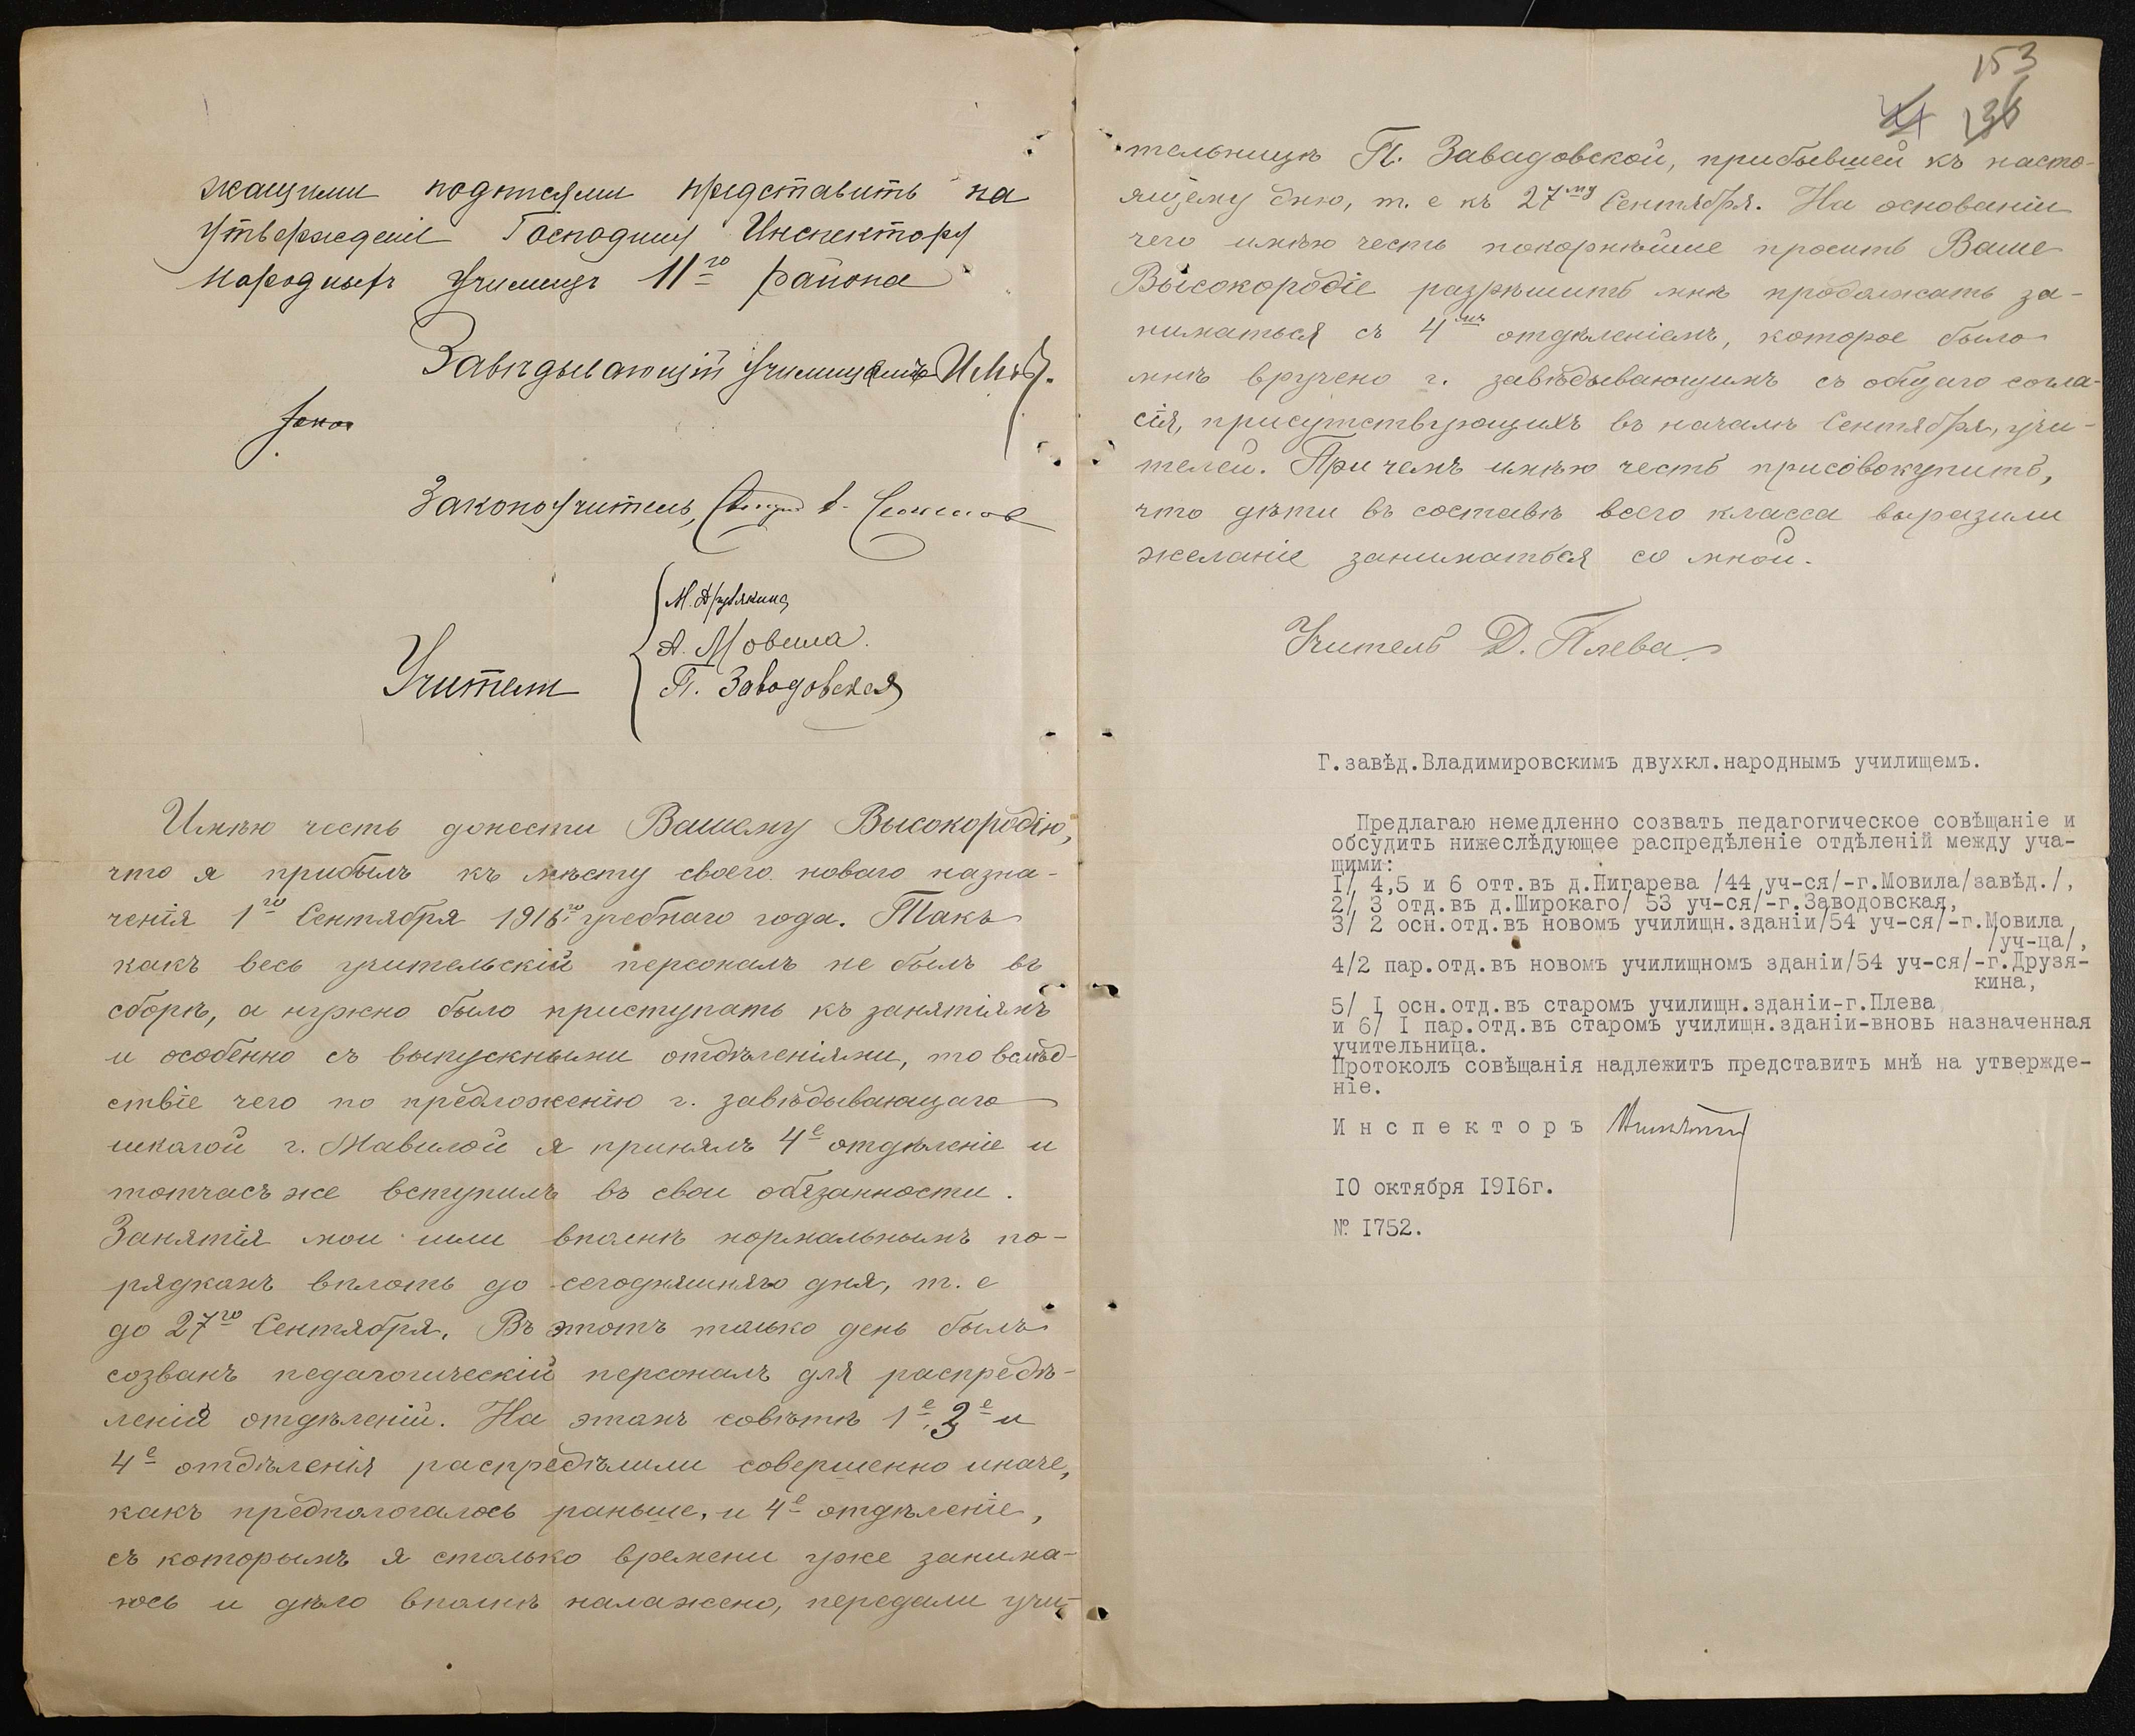 жащими подписями представить на
утвержденіе Господину Инспектору
народныхъ училищъ 11го района
Завѣдывающій училищемъ
Законоучитель,
М. Друзякина
А. Мовила.
Учителя
П. Заводовская
Имѣю честь донести Вашему Высокородію,
что я прибылъ къ мѣсту своего новаго назна-
ченія 1го Сентября 1916го учебнаго года. Такъ
какъ весь учительскій персоналъ не былъ въ
сборѣ, а нужно было приступать къ занятіямъ
и особенно съ выпускными отдѣленіями, то вслѣд-
ствіе чего по предложенію г. завѣдывающаго
школой г. Мавилой я принялъ 4е отдѣленіе и
тотчасъ же вступилъ въ свои обязанности.
Занятія мои шли вполнѣ нормальнымъ по-
рядкамъ вплоть до сегодняшняго дня, т. е
до 27го Сентября. Въ этотъ только день былъ
созванъ педагогическій персоналъ для распредѣ-
ленія отдѣленій. На этамъ совѣтѣ 1е, 3е и
4е отдѣленія распредѣлили совершенно иначе,
какъ предпологалось раньше, и 4е отдѣленіе,
съ которымъ я столько времени уже занима-
юсь и дѣло вполнѣ налажено, передали учи-
153
136
тельницѣ П. Завадовской, прибывшей къ насто-
ящему дню, т. е къ 27му Сентября. На основаніи
чего имѣю честь покорнѣйше просить Ваше
Высокородіе разрѣшить мнѣ продолжать за-
ниматься съ 4мъ отдѣленіемъ, которое было
мнѣ вручено г. завѣдывающимъ съ общаго согла-
сія, присутствующихъ въ началѣ Сентября, учи-
телей. При чемъ имѣю честь присовокупить,
что дѣти въ составѣ всего класса выразили
желаніе заниматься со мной.
Учитель Д. Плева.
Г.завѣд.Владимировскимъ двухкл.народнымъ училищемъ.
Предлагаю немедленно созвать педагогическое совѣщаніе и
обсудить нижеслѣдующее распредѣленіе отдѣленій между уча-
щими:
I/ 4,5 и 6 отт.въ д.Пигарева /44 уч-ся/-г.Мовила/завѣд./,
2/ 3 отд.въ д.Широкаго/ 53 уч-ся/-г.Заводовская,
3/ 2 осн.отд.въ новомъ училищн.зданіи/54 уч-ся/-г.Мовила
/уч-ца/,
4/2 пар.отд.въ новомъ училищномъ зданіи/54 уч-ся/-г.Друзя-
кина,
5/ I осн.отд.въ старомъ училищн.зданіи-г.Плева
и 6/ I пар.отд.въ старомъ училищн.зданіи-вновь назначенная
учительница.
Протоколъ совѣщанія надлежитъ представить мнѣ на утвержде-
ніе.
Инспекторъ
IO октября I9I6г.
№ I752.